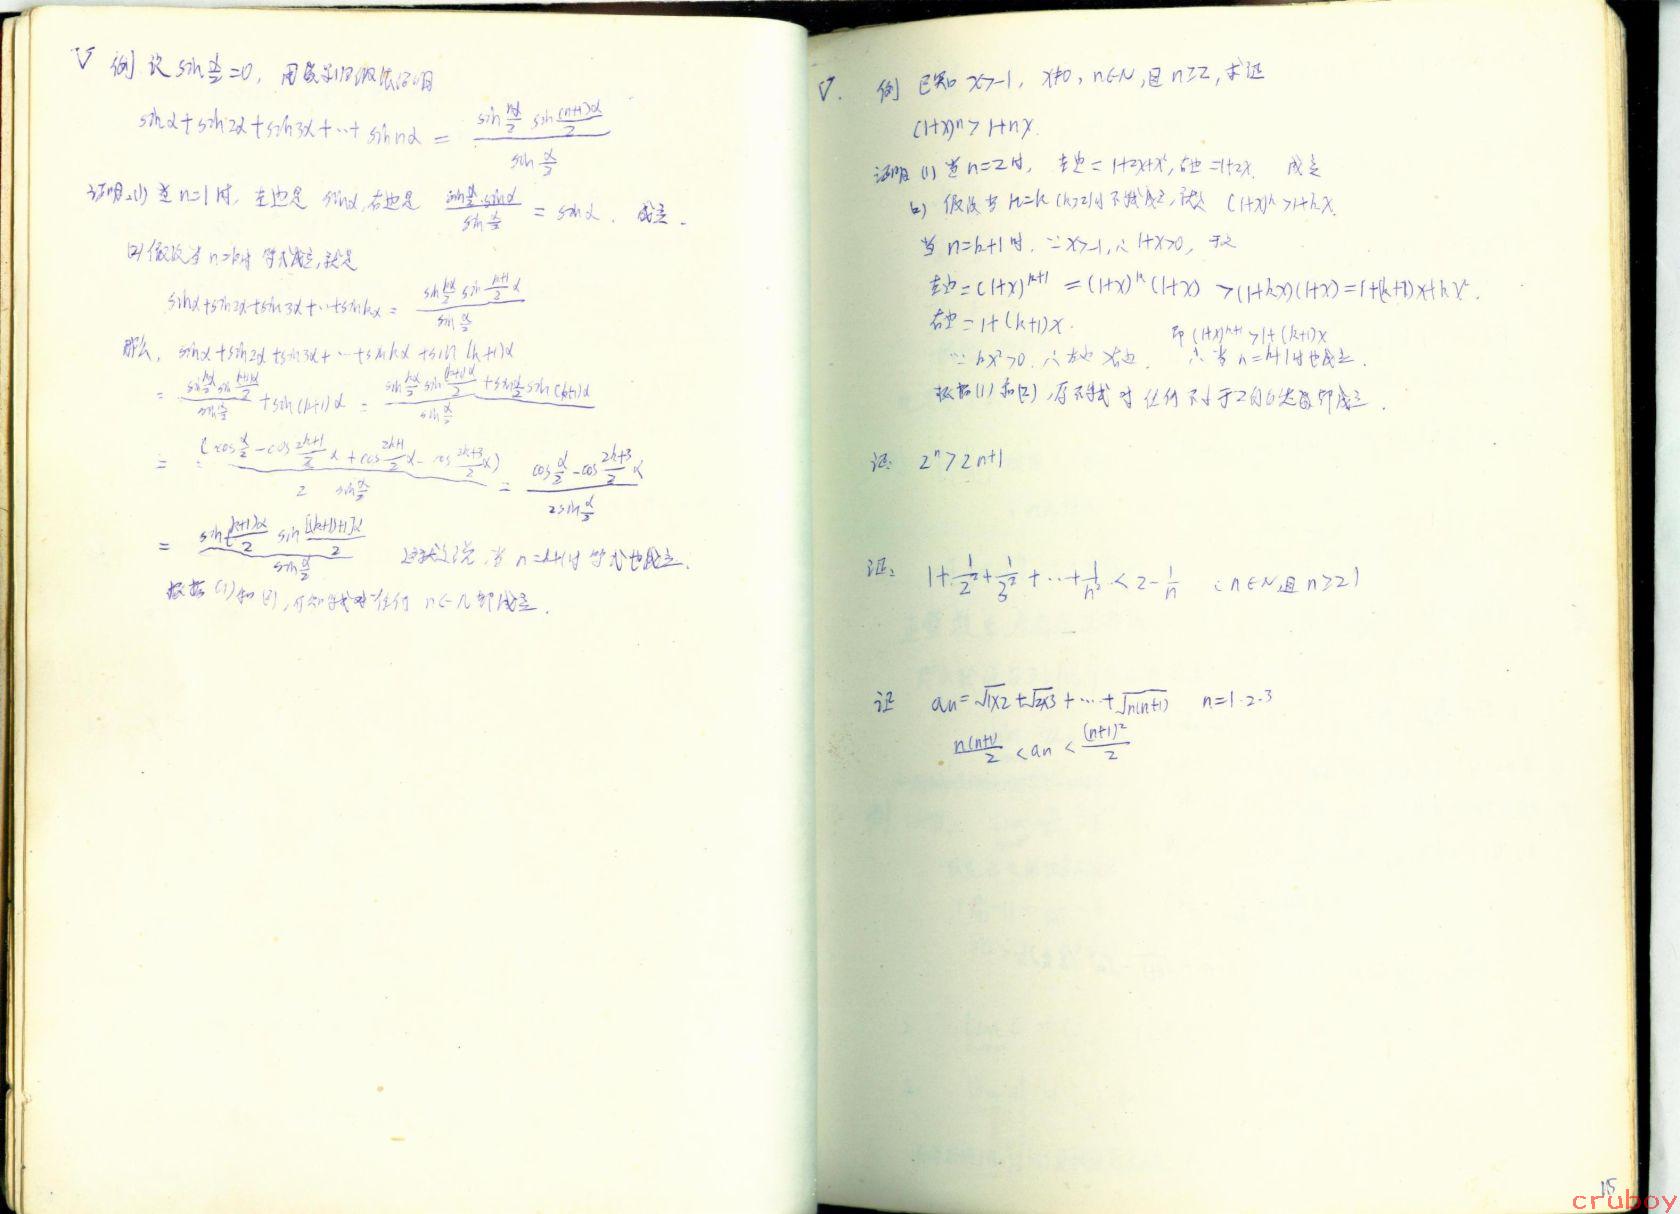 ▽ 例 设 sin α/2 = 0, 用数学归纳法证明
sinα+sin2α+sin3α+…+ sin nα = (sin nα/2 sin (n+1)α/2) / (sin α/2)
证明:(1) 当 n=1 时, 左边是 sinα, 右边是 (sin α/2 · sinα) / (sin α/2) = sinα. 成立.
(2) 假设当 n=k时 等式成立, 就是
sinα+sin2α+sin3α+…+sin kα = (sin kα/2 sin (k+1)/2 α) / (sin α/2)
那么, sinα+sin2α+sin3α+…+sin kα +sin (k+1)α
= (sin kα/2 sin (k+1)α/2) / (sin α/2) + sin(k+1)α = (sin kα/2 sin (k+1)α/2 + sin α/2 sin (k+1)α) / (sin α/2)
= (cos α/2 − cos (2k+1)/2 α + cos (2k+1)/2 α − cos (2k+3)/2 α) / (2 sin α/2) = (cos α/2 − cos (2k+3)/2 α) / (2 sin α/2)
= (sin (k+1)α/2 sin [(k+1)+1]α/2) / (sin α/2) 这就是说, 当 n=k+1时 等式也成立.
根据 (1) 和 (2), 可知等式对任何 n∈N 都成立.
▽. 例 已知 x>-1, x≠0, n∈N, 且 n≥2, 求证
(1+x)ⁿ > 1+nx.
证明 (1) 当 n=2 时, 左边 = 1+2x+x², 右边 =1+2x. 成立
(2) 假设当 n=k (k≥2)时 不等式成立, 就是 (1+x)ᵏ >1+kx.
当 n=k+1 时. ∵x>-1, ∴ 1+x>0, 于是
左边 = (1+x)ᵏ⁺¹ = (1+x)ᵏ (1+x) > (1+kx)(1+x) = 1+(k+1)x+kx².
右边 = 1+(k+1)x.
∵ kx²>0. ∴ 左边 > 右边. 即 (1+x)ᵏ⁺¹ > 1+(k+1)x
∴ 当 n=k+1时也成立.
根据(1) 和(2), 原不等式 对 任何 不小于2的自然数都成立.
证: 2ⁿ > 2n+1
证: 1+ 1/2² + 1/3² +…+ 1/n² < 2 − 1/n (n∈N,且 n≥2)
证 an = √1×2 + √2×3 +…+ √n(n+1) n=1·2·3
n(n+1)/2 < an < (n+1)²/2
115
cruboy